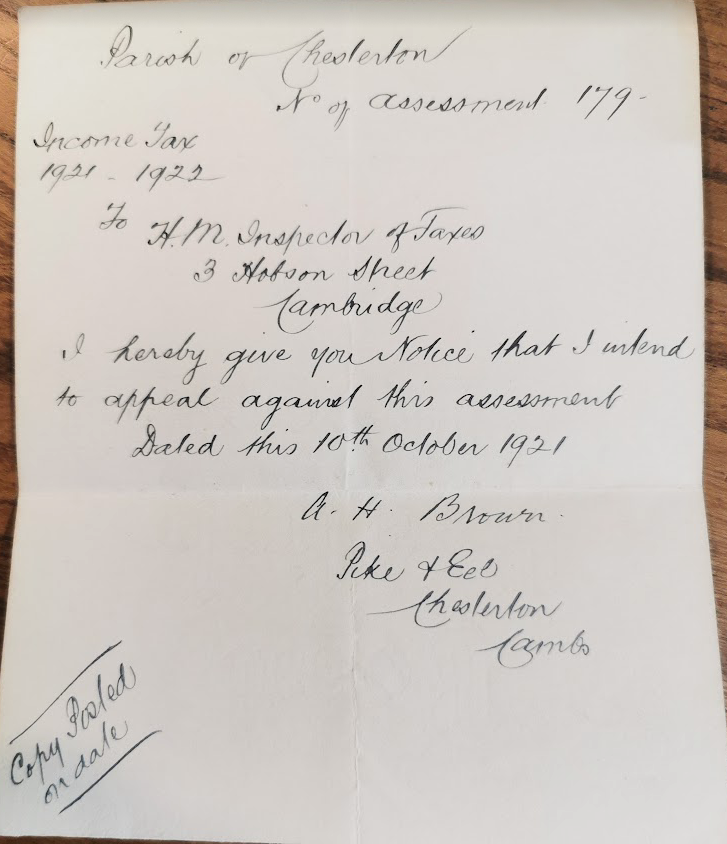 Parish of Chesterton
No of assessment 179-
Income Tax
1921 - 1922
To H.M. Inspector of Taxes
3 Hobson Street
Cambridge
I hereby give you Notice that I intend
to appeal against this assessment
Dated this 10th October 1921
A. H. Brown.
Pike & Eel
Chesterton
Cambs
Copy Posted
on date